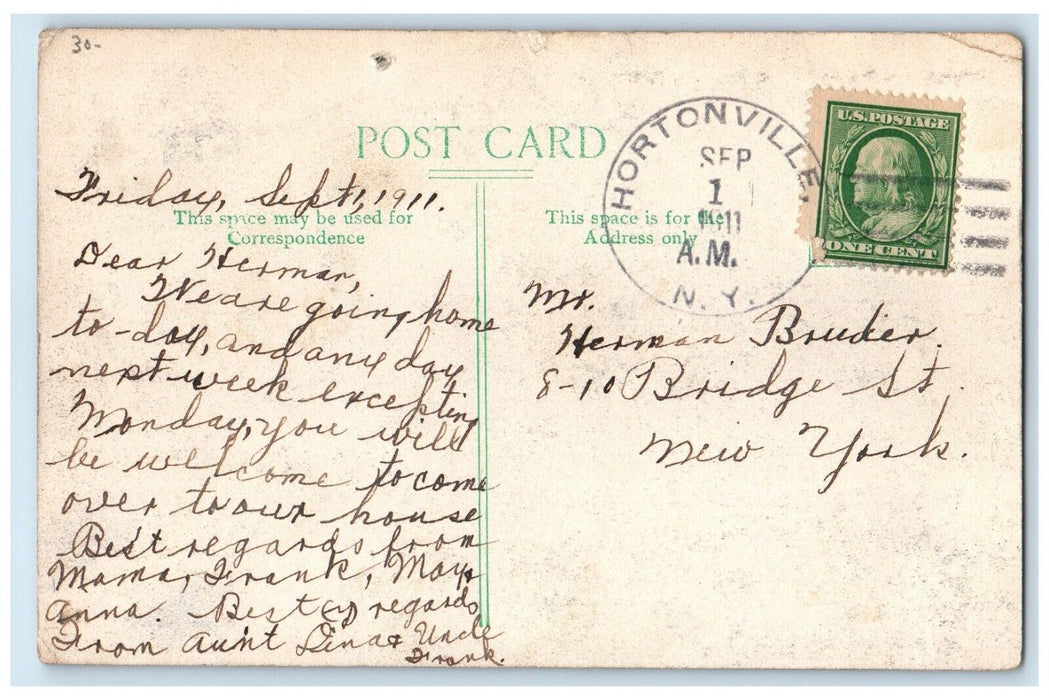 30-
POST CARD
Friday, Sept 1, 1911.
This space may be used for
Correspondence
Dear Herman,
We are going home
to-day, and any day
next week excepting
Monday, you will
be welcome to come
over to our house
Best regards from
Mama, Frank, May &
Anna. Best regards
From Aunt Lina & Uncle
Frank.
This space is for the
Address only
HORTONVILLE,
SEP
1
1911
A.M.
N.Y.
U.S. POSTAGE
ONE CENT
Mr.
Herman Bruder.
8-10 Bridge St.
New York.